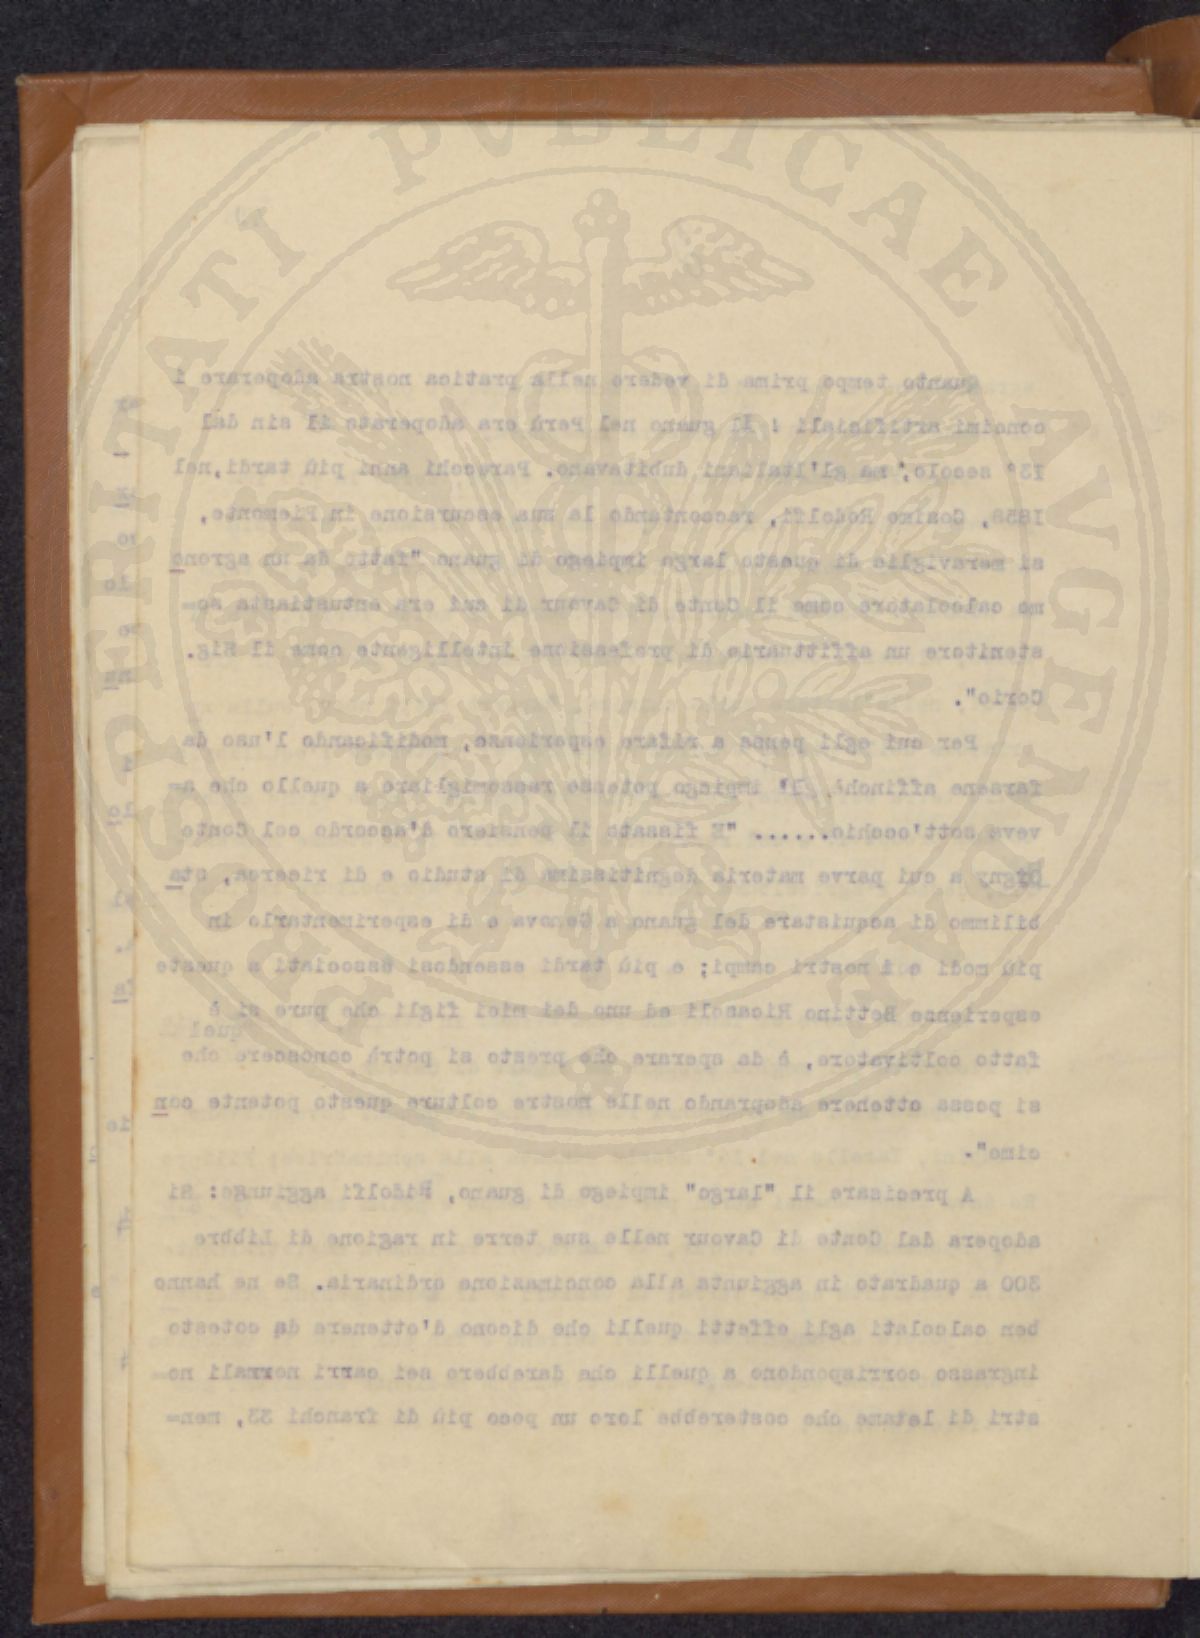 PROSPERITATI PVBLICAE AVGENDAE
Quanto tempo prima di vedere nella pratica nostra adoperare i
concimi artificiali ! Il guano nel Perù era adoperato il sin dal
13° secolo, ma gl'Italiani dubitavano. Parecchi anni più tardi, nel
1858, Cosimo Rodolfi, raccontando la sua escursione in Piemonte,
si meraviglia di questo largo impiego di guano "fatto da un agrono
mo calcolatore come il Conte di Cavour di cui era entustiasta so=
stenitore un affittuario di professione intelligente come il Sig.
Corio".
Per cui egli pensa a rifare esperienze, modificando l'uso da
farsene affinchè l' impiego potesse rassomigliare a quello che a=
veva sott'occhio...... "E fissato il pensiero d'accordo col Conte
Digny a cui parve materia degnitissima di studio e di ricerca, sta
bilimmo di acquistare del guano a Genova e di esperimentarlo in
più modi e i nostri campi; e più tardi essendosi associati a queste
esperienze Bettino Ricasoli ed uno dei miei figli che pure si è
fatto coltivatore, è da sperare che presto si potrà conoscere che
quel
si possa ottenere adoprando nelle nostre colture questo potente con
cime".
A precisare il "largo" impiego di guano, Ridolfi aggiunge: Si
adopera dal Conte di Cavour nelle sue terre in ragione di Libbre
300 a quadrato in aggiunta alla concimazione ordinaria. Se ne hanno
ben calcolati agli effetti quelli che dicono d'ottenere da cotesto
ingrasso corrispondono a quelli che darebbero sei carri normali no=
stri di letame che costerebbe loro un poco più di franchi 33, men=